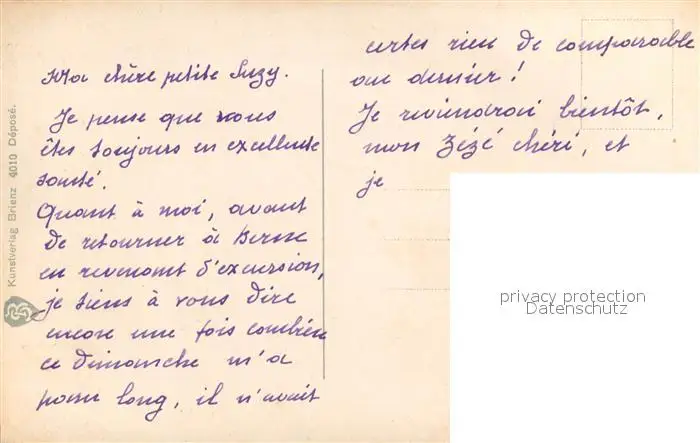 Ma chère petite Suzy.
Je pense que vous
êtes toujours en excellente
santé.
Quant à moi, avant
de retourner à Berne
en revenant d'excursion,
je tiens à vous dire
encore une fois combien
ce dimanche m'a
paru long, il n'avait
certes rien de comparable
au dernier !
Je reviendrai bientôt,
mon Zézé chéri, et
je
Kunstverlag Brienz 4010 Déposé.
privacy protection
Datenschutz